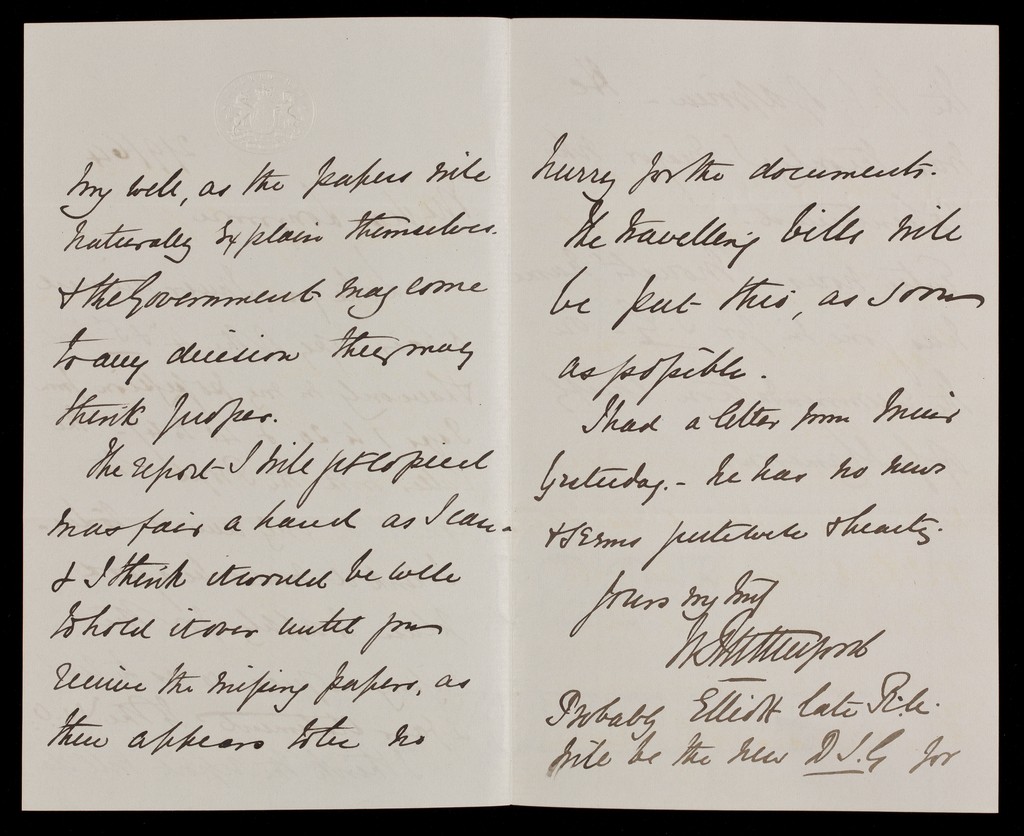 very well, as the papers will
naturally explain themselves
& the Government may come
to any decision they may
think proper.
The report I will get copied
in as fair a hand as I can -
& I think it would be well
to hold it over until you
receive the missing papers, as
there appears to be no
hurry for the documents.
The travelling bills will
be put thro', as soon
as possible.
I had a letter from Muir
Yesterday. - he has no news
& seems quite well & hearty.
Yours very truly
W Rutherford
Probably Elliott late
will be the new D.I.G for